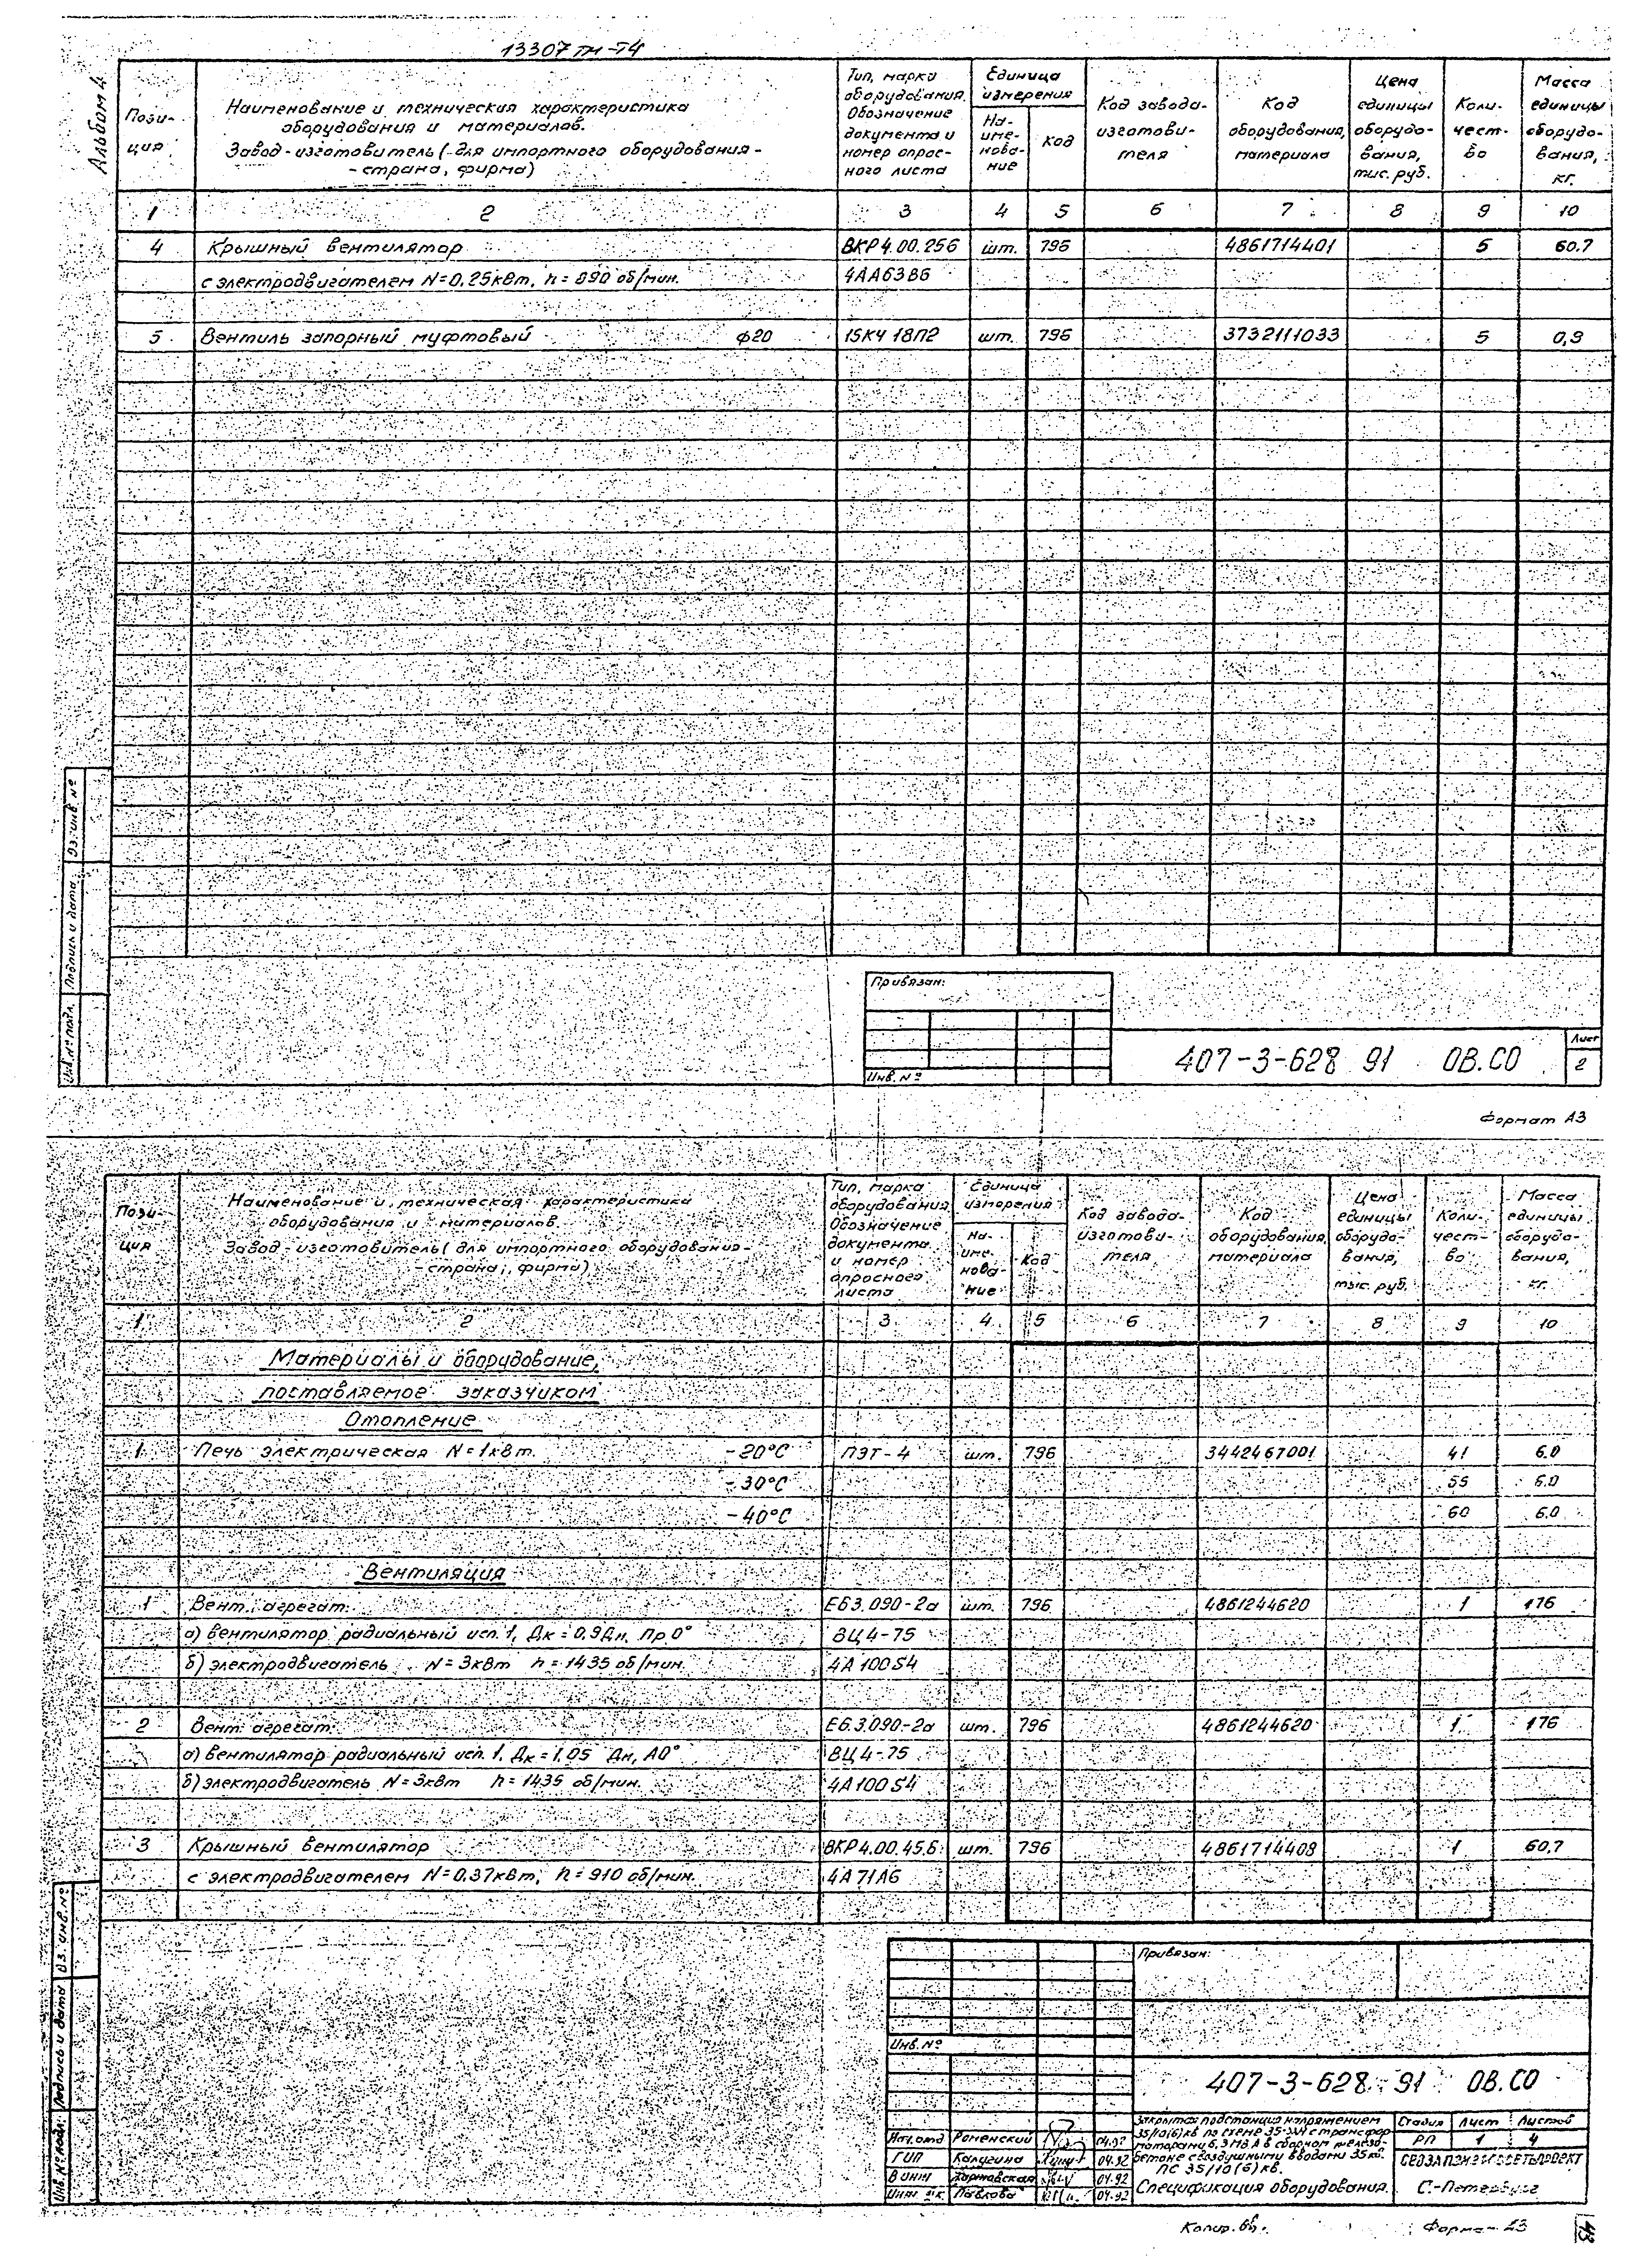 13307 тм-т4
Альбом 4
Пози-
ция
Наименование и техническая характеристика
оборудования и материалов.
Завод-изготовитель (для импортного оборудования -
- страна, фирма)
Тип, марка
оборудования.
Обозначение
документа и
номер опрос-
ного листа
Единица
измерения
На-
име-
нова-
ние
Код
Код завода-
изготови-
теля
Код
оборудования,
материала
Цена
единицы
оборудо-
вания,
тыс. руб.
Коли-
чест-
во
Масса
единицы
оборудо-
вания,
кг.
1 2 3 4 5 6 7 8 9 10
4 Крышный вентилятор ВКР4.00.256 шт. 796 4861714401 5 60.7
с электродвигателем N=0,25кВт, n=890 об/мин. 4АА63В6
5 Вентиль запорный муфтовый ф20 15КЧ 18П2 шт. 796 3732111033 5 0,9
Вз. инв №
Подпись и дата
Инв. № подл.
Привязан:
Инв. №
407-3-628 91 ОВ.СО
Лист
2
Формат А3
Пози-
ция
Наименование и техническая характеристика
оборудования и материалов.
Завод-изготовитель (для импортного оборудования -
- страна, фирма)
Тип, марка
оборудования.
Обозначение
документа
и номер
опросного
листа
Единица
измерения
На-
име-
нова-
ние
Код
Код завода-
изготови-
теля
Код
оборудования,
материала
Цена
единицы
оборудо-
вания,
тыс. руб.
Коли-
чест-
во
Масса
единицы
оборудо-
вания,
кг.
1 2 3 4 5 6 7 8 9 10
Материалы и оборудование,
поставляемое заказчиком
Отопление
1 Печь электрическая N=1кВт. -20°С ПЭТ-4 шт. 796 3442467001 41 6.0
-30°С 55 6.0
-40°С 60 6.0
Вентиляция
1 Вент. агрегат: Е6.3.090-2а шт. 796 4861244620 1 176
а) вентилятор радиальный исп. 1, Дк=0,9Дн, Пр 0° ВЦ 4-75
б) электродвигатель N=3кВт n=1435 об/мин. 4А100S4
2 Вент. агрегат: Е6.3.090-2а шт. 796 4861244620 1 176
а) вентилятор радиальный исп. 1, Дк=1.05 Дн, Л0° ВЦ 4-75
б) электродвигатель N=3кВт n=1435 об/мин. 4А100S4
3 Крышный вентилятор ВКР4.00.45.6 шт. 796 4861714409 1 60,7
с электродвигателем N=0.37кВт, n=910 об/мин. 4А71А6
Вз. инв. №
Подпись и дата
Инв. № подл.
Привязан:
Инв. №
407-3-628 91 ОВ.СО
Нач.отд Роменский 04.92
ГИП Калугина 04.92
В инж 04.92
Павлова 04.92
Закрытая подстанция напряжением
35/10(6)кв по схеме 35- с трансфор
маторами 6,3 МВА в сборном железо-
бетоне с воздушными вводами 35кв.
ПС 35/10(6)кв.
Спецификация оборудования.
Стадия Лист Листов
РП 1 4
СЕВЗАПЭНЕРГОСЕТЬПРОЕКТ
С.-Петербург
Копир.
Формат А3
43